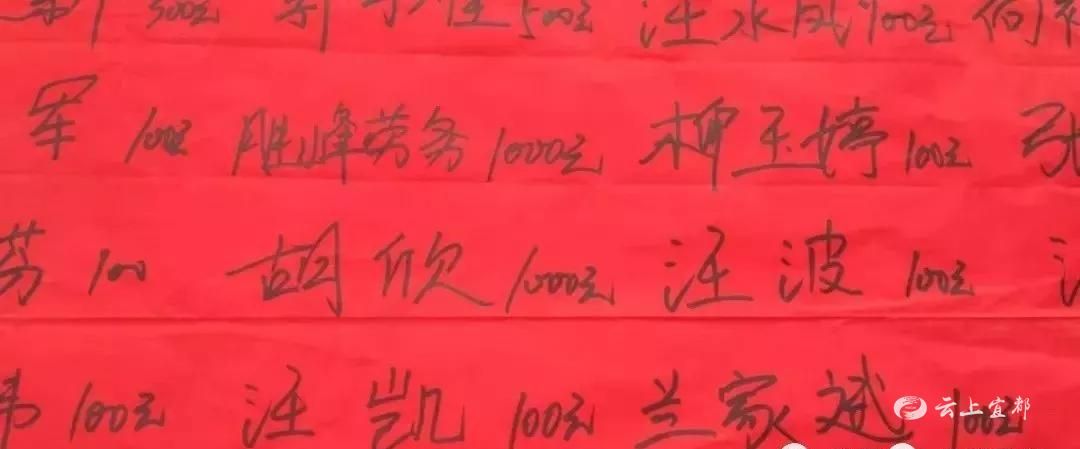 500元 汪水凤 100元
军 100元 胜峰劳务 1000元 柳玉婷 100元 张
芬 100 胡欣 1000元 汪波 100元
韦 100元 汪凯 100元 兰家斌 100元
云上宜都